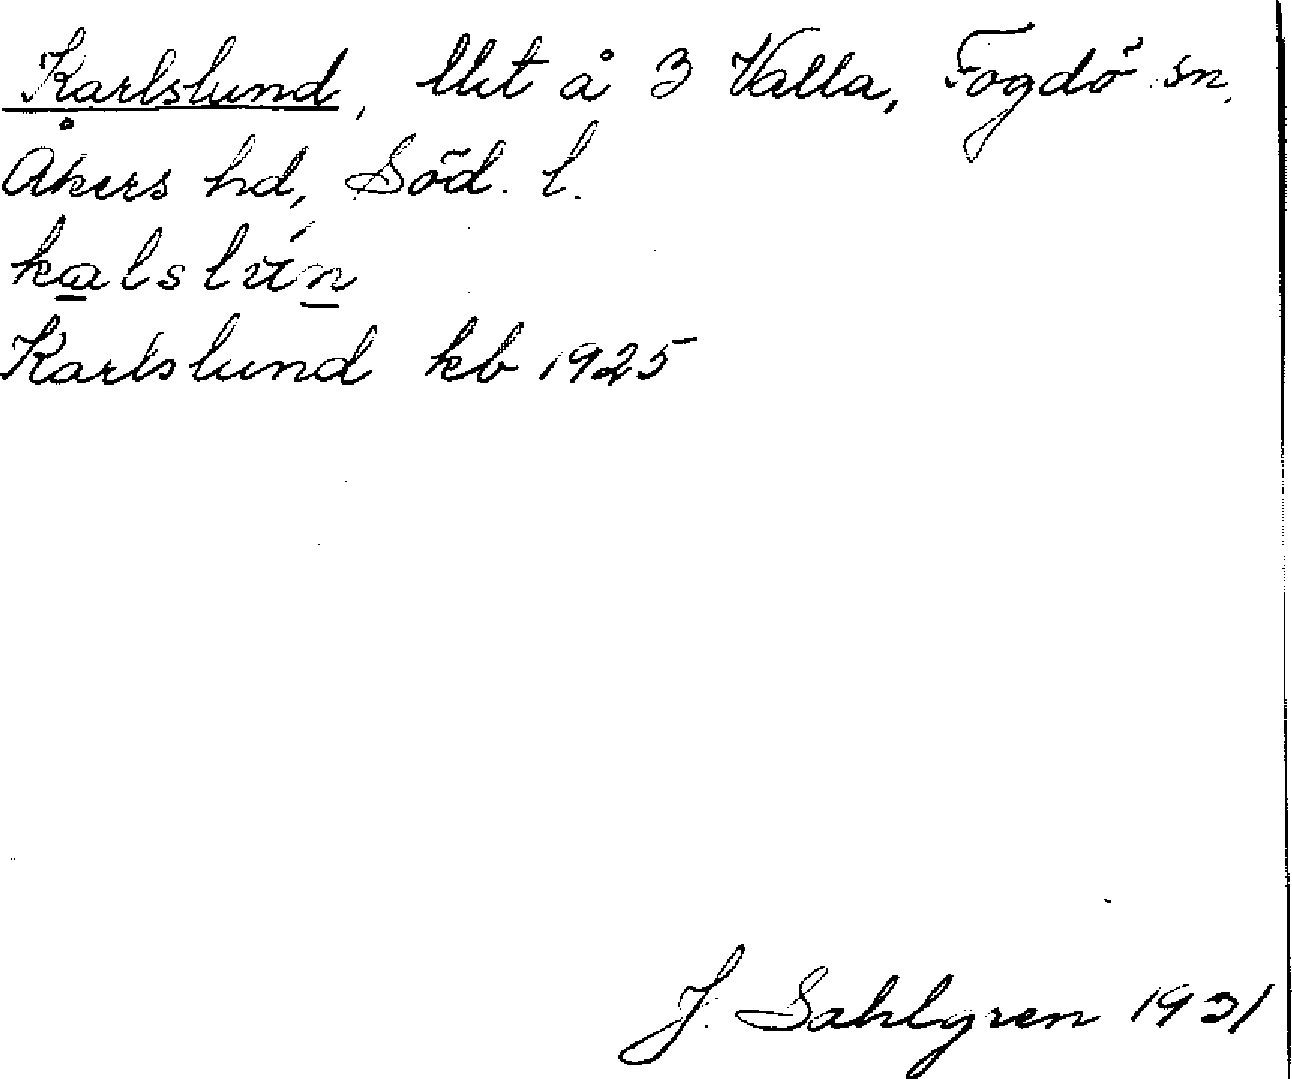 Karlslund, lht å 3 Valla, Fogdö sn,
Åkers hd, Söd. l.
kalslún
Karlslund kb 1925
J. Sahlgren 1931